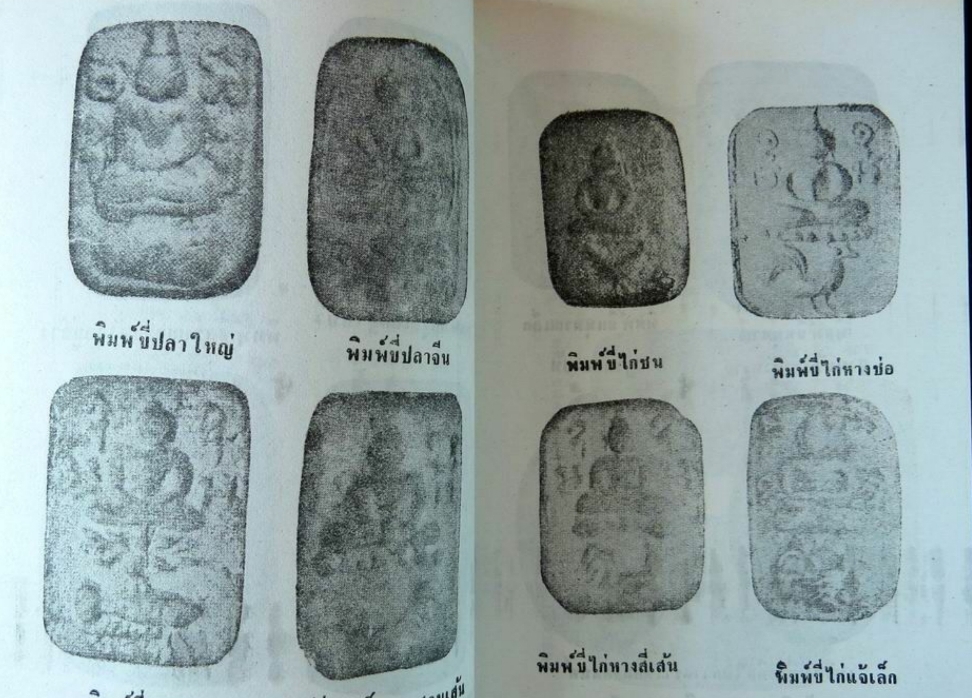 พิมพ์ขี่ปลาใหญ่
พิมพ์ขี่ปลาจีน
พิมพ์ขี่ไก่ชน
พิมพ์ขี่ไก่หางช่อ
พิมพ์ขี่ไก่หางสี่เส้น
พิมพ์ขี่ไก่แจ้เล็ก